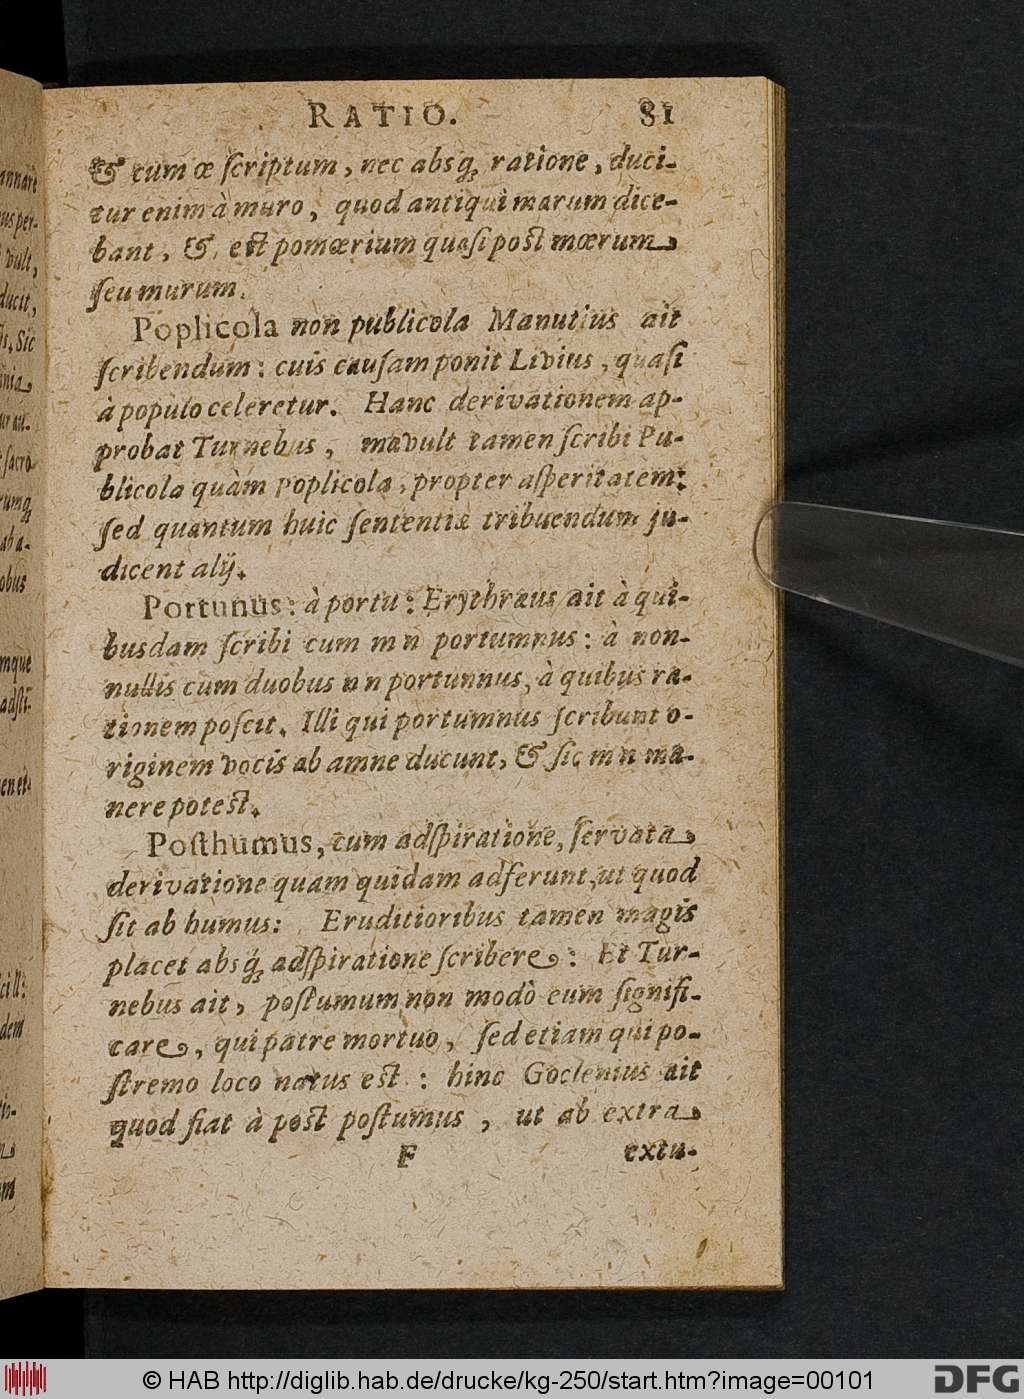 RATIO. 81
& cum œ ſcriptum, nec absq́; ratione, duci-
tur enim à muro, quod antiqui mœrum dice-
bant, & est pomœrium quaſi post mœrum
ſeu murum.
Poplicola non publicola Manutius ait
ſcribendum: cuis cauſam ponit Livius, quaſi
à populo celeretur. Hanc derivationem ap-
probat Turnebus, mavult tamen ſcribi Pu-
blicola quàm Poplicola, propter aſperitatem:
ſed quantum huic ſententiæ tribuendum ju-
dicent alij.
Portunus: à portu: Erythræus ait à qui-
busdam ſcribi cum mn portumnus: à non-
nullis cum duobus nn portunnus, à quibus ra-
tionem poſcit. Illi qui portumnus ſcribunt o-
riginem vocis ab amne ducunt, & ſic mn ma-
nere potest.
Poſthumus, cum adſpiratione, ſervata
derivatione quam quidam adferunt, ut quod
ſit ab humus: Eruditioribus tamen magis
placet absq́; adſpiratione ſcribere: Et Tur-
nebus ait, poſtumum non modò eum ſignifi-
care, qui patre mortuo, ſed etiam qui po-
ſtremo loco natus est: hinc Goclenius ait
quod fiat à post poſtumus, ut ab extra
F extu-
© HAB http://diglib.hab.de/drucke/kg-250/start.htm?image=00101
DFG